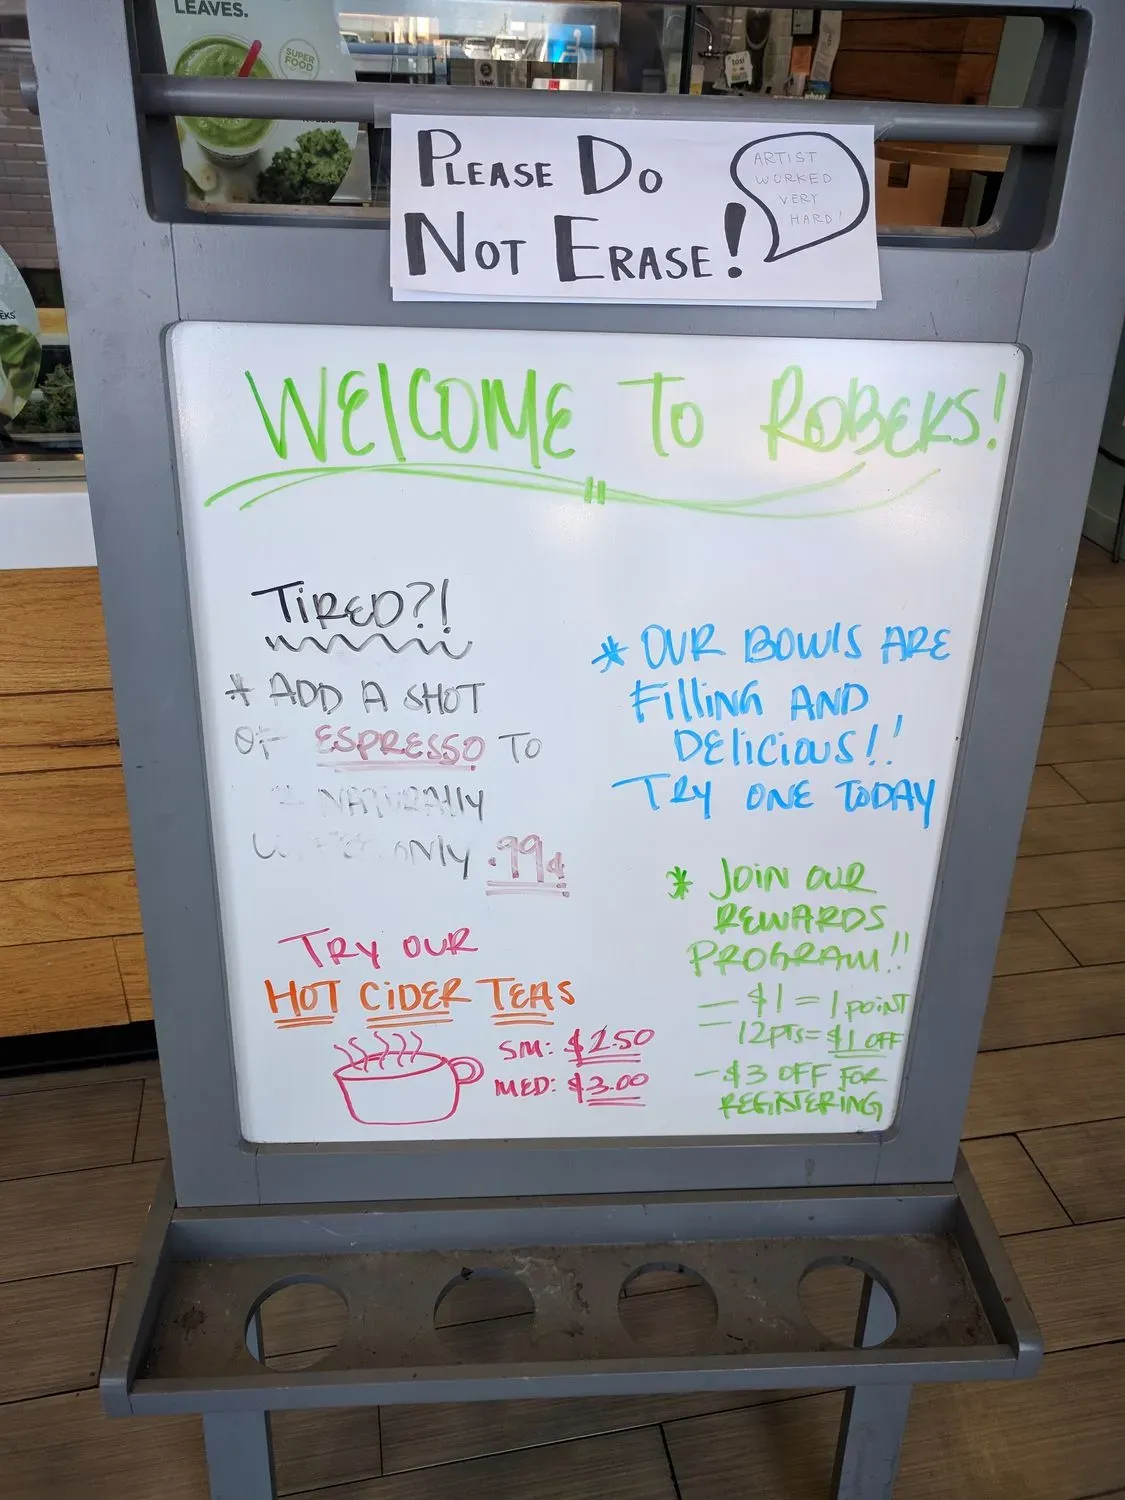 LEAVES.
SUPER
FOOD
PLEASE DO
NOT ERASE!
ARTIST
WORKED
VERY
HARD!
WELCOME TO ROBEKS!
TIRED?!
* ADD A SHOT
OF ESPRESSO TO
NATURALLY
ONLY .99¢
TRY OUR
HOT CIDER TEAS
SM: $2.50
MED: $3.00
* OUR BOWLS ARE
FILLING AND
DELICIOUS!!
TRY ONE TODAY
* JOIN OUR
REWARDS
PROGRAM!!
- $1 = 1 POINT
- 12PTS = $1 OFF
- $3 OFF FOR
REGISTERING